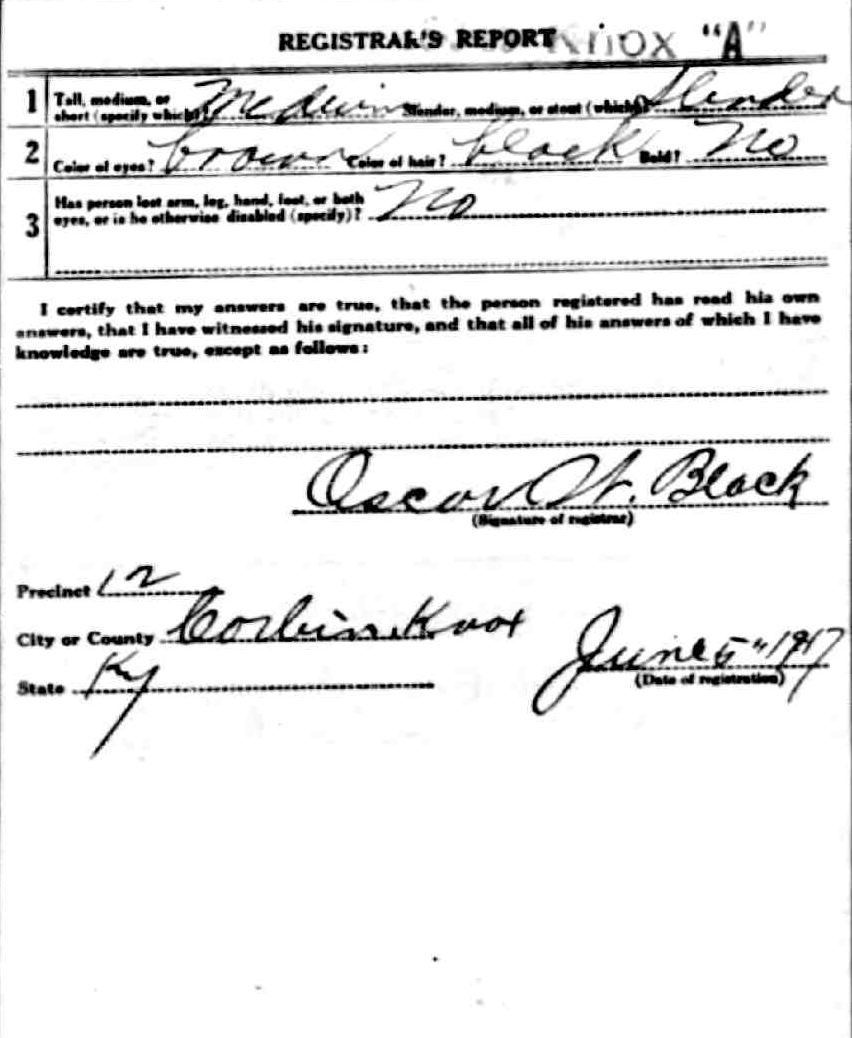 REGISTRAR'S REPORT Knox "A"
1 Tall, medium, or short (specify which)? Medium Slender, medium, or stout (which)? Slender
2 Color of eyes? brown Color of hair? black Bald? No
3 Has person lost arm, leg, hand, foot, or both
eyes, or is he otherwise disabled (specify)? No
I certify that my answers are true, that the person registered has read his own
answers, that I have witnessed his signature, and that all of his answers of which I have
knowledge are true, except as follows:
Oscar W. Black
(Signature of registrar)
Precinct 12
City or County Corbin, Knox
State Ky
June 5" 1917
(Date of registration)